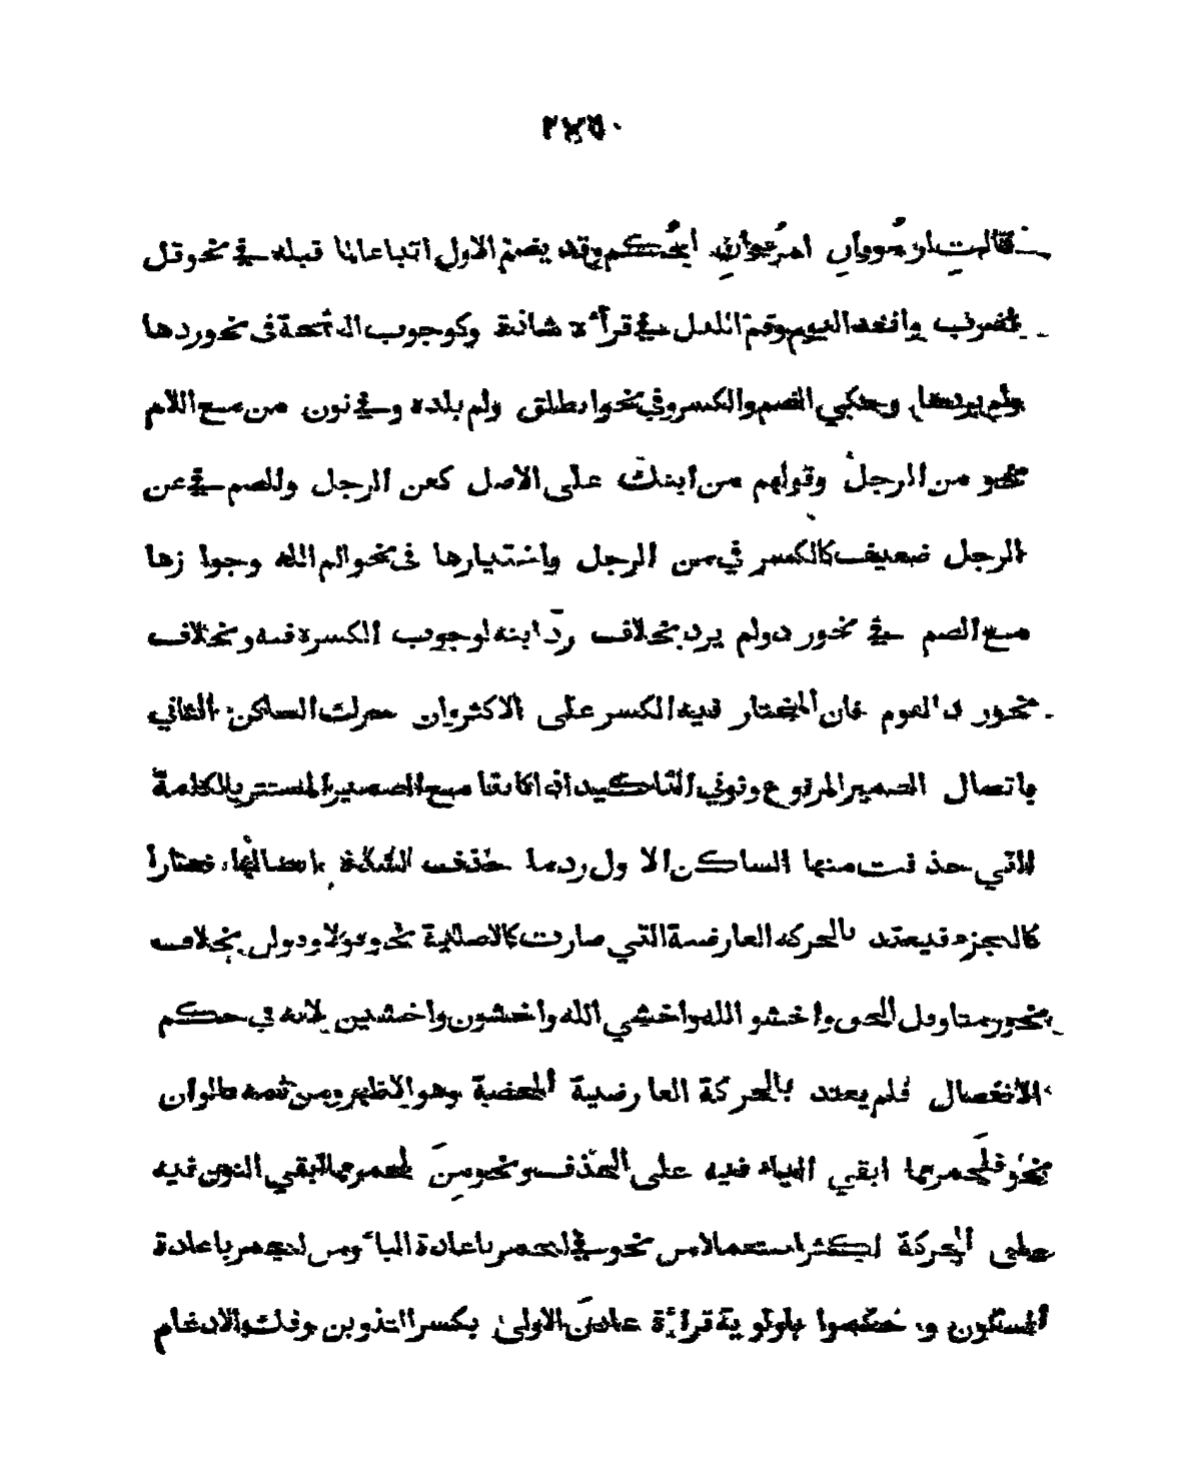 قالت ارموا ان امرؤ ان الحكم وقد يضم الاول اتباعا لما قبله في نحو قل
اضرب وانغد اليوم وقم الليل في قرأة شاذة وكوجوب الفتحة فى نحو ردها
ولم يردها وحكي الضم والكسر وفي نحو انطلق ولم يلده وفي نون من مع اللام
نحو من الرجل وقولهم من ابنك على الاصل كعن الرجل والضم في عن
الرجل ضعيف كالكسر في من الرجل واختيارها فى نحو الم الله وجوازها
مع الضم في نحو رد ولم يرد بخلاف ردّ ابنه لوجوب الكسرة فيه وبخلاف
نحو رد القوم فان المختار فيه الكسر على الاكثر وان حرك الساكن الثاني
باتصال الضمير المرفوع ونوني التاكيد اذا كانتا مع الضمير المستتر بالكلمة
التي حذفت منها الساكن الاول رد ما حذف لشدة اتصالها فصارا
كالجزء فيعتد بالحركه العارضة التي صارت كالاصلية نحو قولا وقولن بخلاف
نحو رمتا وقل الحق واخشو الله واخشي الله واخشون واخشين لانه في حكم
الانفصال فلم يعتد بالحركة العارضية المحضة وهو الاظهر ومن ثمه قالوا ان
نحو فلحمر بما ابقي الياء فيه على الحذف ونحو من لحمر بما ابقي النون فيه
على الحركة اكثر استعمالا من نحو في لحمر باعادة الياء ومن لحمر باعادة
السكون و بأولوية قرأة عادَ الاولىٰ بكسر التنوين وفك الادغام